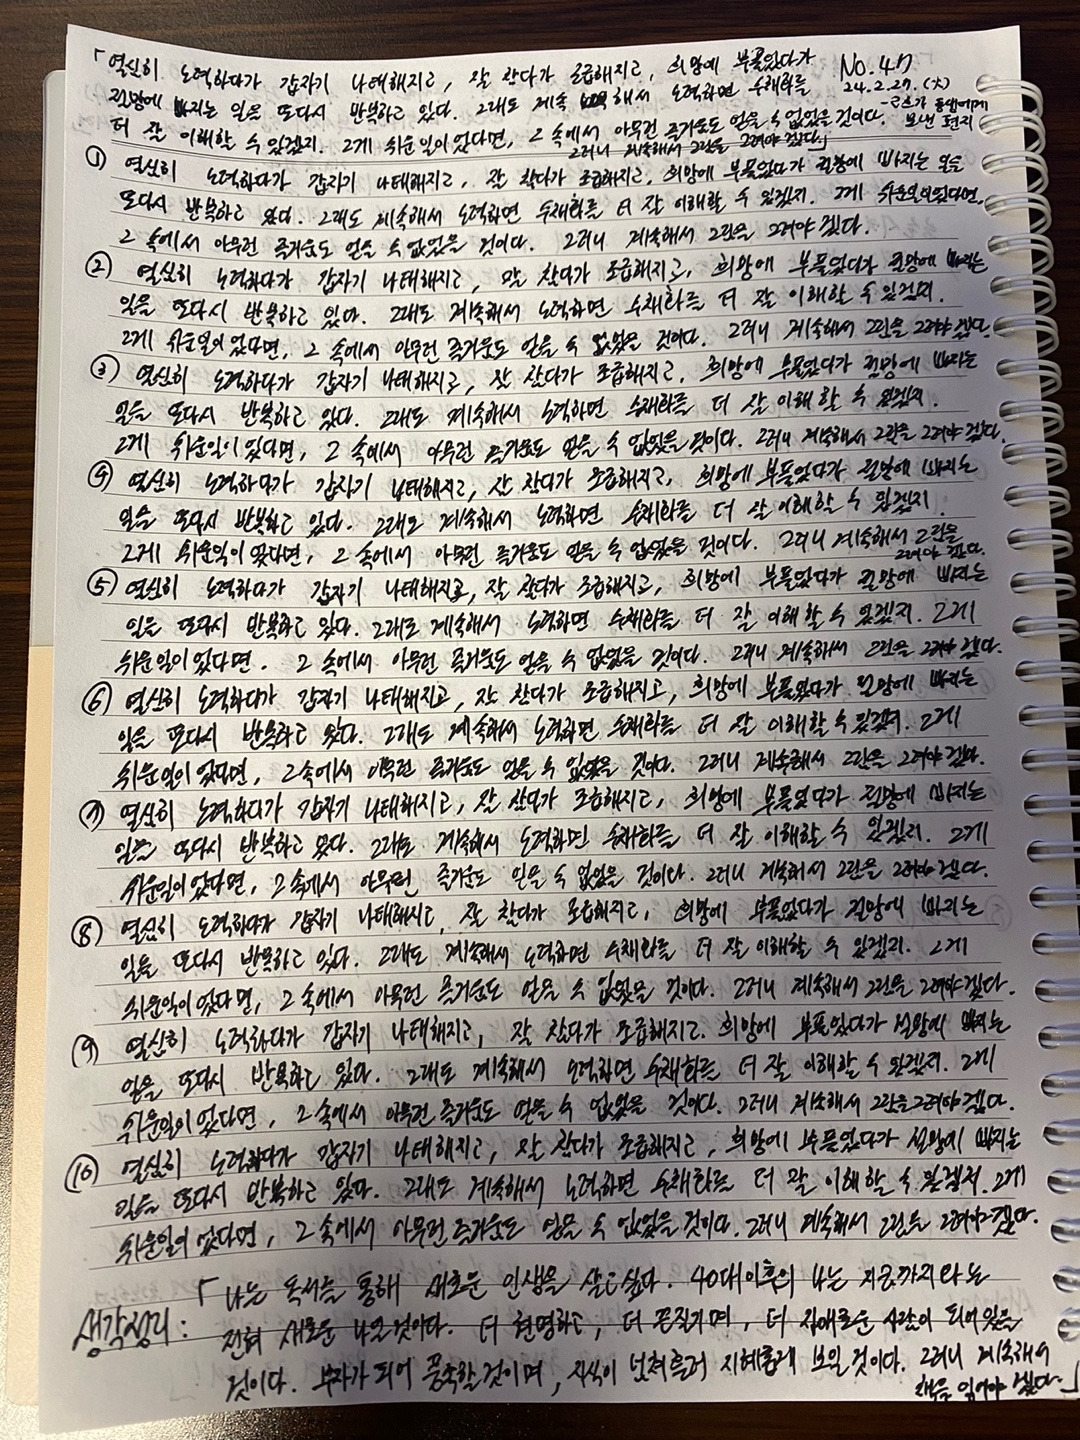 「열심히 노력하다가 갑자기 나태해지고, 잘 참다가 조급해지고, 희망에 부풀었다가 No.47
절망에 빠지는 일을 또다시 반복하고 있다. 그래도 계속해서 노력하면 수채화를 24.2.27.(火)
더 잘 이해할 수 있겠지. 그게 쉬운일이었다면, 그 속에서 아무런 즐거움도 얻을 수 없었을 것이다. -고흐가 동생에게 보낸 편지
그러니 계속해서 그림을 그려야 겠다.」
① 열심히 노력하다가 갑자기 나태해지고, 잘 참다가 조급해지고, 희망에 부풀었다가 절망에 빠지는 일을
또다시 반복하고 있다. 그래도 계속해서 노력하면 수채화를 더 잘 이해할 수 있겠지. 그게 쉬운일이었다면,
그 속에서 아무런 즐거움도 얻을 수 없었을 것이다. 그러니 계속해서 그림을 그려야 겠다.
② 열심히 노력하다가 갑자기 나태해지고, 잘 참다가 조급해지고, 희망에 부풀었다가 절망에 빠지는
일을 또다시 반복하고 있다. 그래도 계속해서 노력하면 수채화를 더 잘 이해할 수 있겠지.
그게 쉬운일이었다면, 그 속에서 아무런 즐거움도 얻을 수 없었을 것이다. 그러니 계속해서 그림을 그려야 겠다.
③ 열심히 노력하다가 갑자기 나태해지고, 잘 참다가 조급해지고, 희망에 부풀었다가 절망에 빠지는
일을 또다시 반복하고 있다. 그래도 계속해서 노력하면 수채화를 더 잘 이해할 수 있겠지.
그게 쉬운일이었다면, 그 속에서 아무런 즐거움도 얻을 수 없었을 것이다. 그러니 계속해서 그림을 그려야 겠다.
④ 열심히 노력하다가 갑자기 나태해지고, 잘 참다가 조급해지고, 희망에 부풀었다가 절망에 빠지는
일을 또다시 반복하고 있다. 그래도 계속해서 노력하면 수채화를 더 잘 이해할 수 있겠지.
그게 쉬운일이었다면, 그 속에서 아무런 즐거움도 얻을 수 없었을 것이다. 그러니 계속해서 그림을
그려야 겠다.
⑤ 열심히 노력하다가 갑자기 나태해지고, 잘 참다가 조급해지고, 희망에 부풀었다가 절망에 빠지는
일을 또다시 반복하고 있다. 그래도 계속해서 노력하면 수채화를 더 잘 이해할 수 있겠지. 그게
쉬운일이었다면, 그 속에서 아무런 즐거움도 얻을 수 없었을 것이다. 그러니 계속해서 그림을 그려야 겠다.
⑥ 열심히 노력하다가 갑자기 나태해지고, 잘 참다가 조급해지고, 희망에 부풀었다가 절망에 빠지는
일을 또다시 반복하고 있다. 그래도 계속해서 노력하면 수채화를 더 잘 이해할 수 있겠지. 그게
쉬운일이었다면, 그 속에서 아무런 즐거움도 얻을 수 없었을 것이다. 그러니 계속해서 그림을 그려야 겠다.
⑦ 열심히 노력하다가 갑자기 나태해지고, 잘 참다가 조급해지고, 희망에 부풀었다가 절망에 빠지는
일을 또다시 반복하고 있다. 그래도 계속해서 노력하면 수채화를 더 잘 이해할 수 있겠지. 그게
쉬운일이었다면, 그 속에서 아무런 즐거움도 얻을 수 없었을 것이다. 그러니 계속해서 그림을 그려야 겠다.
⑧ 열심히 노력하다가 갑자기 나태해지고, 잘 참다가 조급해지고, 희망에 부풀었다가 절망에 빠지는
일을 또다시 반복하고 있다. 그래도 계속해서 노력하면 수채화를 더 잘 이해할 수 있겠지. 그게
쉬운일이었다면, 그 속에서 아무런 즐거움도 얻을 수 없었을 것이다. 그러니 계속해서 그림을 그려야 겠다.
⑨ 열심히 노력하다가 갑자기 나태해지고, 잘 참다가 조급해지고. 희망에 부풀었다가 절망에 빠지는
일을 또다시 반복하고 있다. 그래도 계속해서 노력하면 수채화를 더 잘 이해할 수 있겠지. 그게
쉬운일이었다면, 그 속에서 아무런 즐거움도 얻을 수 없었을 것이다. 그러니 계속해서 그림을 그려야 겠다.
⑩ 열심히 노력하다가 갑자기 나태해지고, 잘 참다가 조급해지고, 희망에 부풀었다가 절망에 빠지는
일을 또다시 반복하고 있다. 그래도 계속해서 노력하면 수채화를 더 잘 이해할 수 있겠지. 그게
쉬운일이었다면, 그 속에서 아무런 즐거움도 얻을 수 없었을 것이다. 그러니 계속해서 그림을 그려야 겠다.
생각정리: 「나는 독서를 통해 새로운 인생을 살고싶다. 40대이후의 나는 지금까지와는
전혀 새로운 나일것이다. 더 현명하고, 더 끈질기며, 더 자애로운 사람이 되어있을
것이다. 부자가 되어 풍족할것이며, 지식이 넘쳐흘러 지혜롭게 보일 것이다. 그러니 계속해서
책을 읽어야 겠다.」